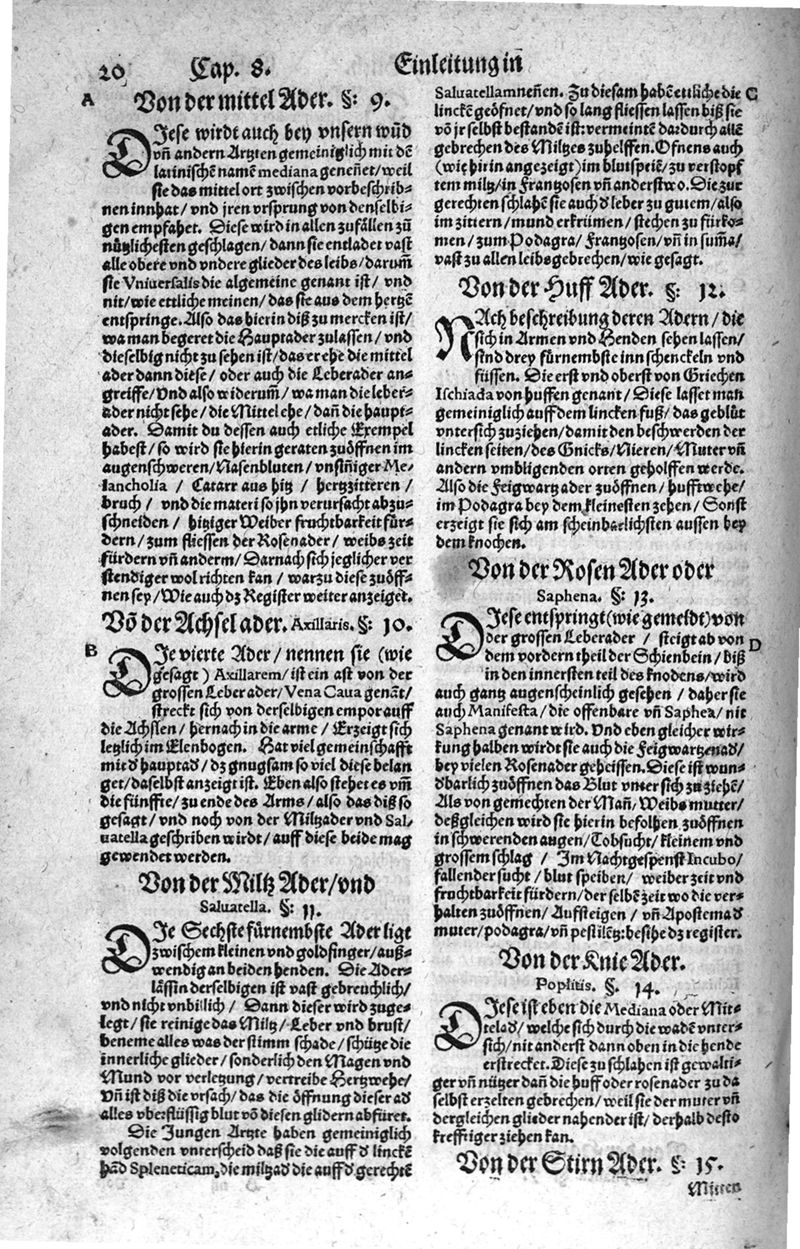 20 Cap. 8. Einleitung in
A Von der mittel Ader. §: 9.
DIese wirdt auch bey vnsern wn̄d
vn̄ andern Artzten gemeiniglich mit dē
latinischē namē mediana genen̄et/weil
sie das mittel ort zwischen vorbeschrib⸗
nen innhat/vnd jren vrsprung von denselbi⸗
gen empfahet. Diese wird in allen zufällen zū
nützlichesten geschlagen/dann sie entladet vast
alle obere vnd vndere glieder des leibs/darum̄
sie Vniuersalis die algemeine genant ist/ vnd
nit/wie ettliche meinen/das sie aus dem hertzē
entspringe. Also das hierin diß zu mercken ist/
wa man begeret die Hauptader zulassen/ vnd
dieselbig nicht zu sehen ist/das er ehe die mittel
ader dann diese/ oder auch die Leberader an⸗
greiffe/Vnd also widerum̄/wa man die leber⸗
ader nicht sehe/die Mittel ehe/dan̄ die haupt⸗
ader. Damit du dessen auch etliche Exempel
habest/so wird sie hierin geraten zuöffnen im
augenschweren/Nasenbluten/vnsin̄iger Me⸗
lancholia / Catarr aus hitz / hertzzitteren /
bruch / vnd die materi so jhn verursacht abzu⸗
schneiden / hitziger Weiber fruchtbarkeit für⸗
dern/zum fliessen der Rosenader/ weibs zeit
fürdern vn̄ anderm/Darnach sich jeglicher ver
stendiger wol richten kan / warzu diese zuöff⸗
nen sey/Wie auch dz Register weiter anzeiget.
Vō der Achsel ader. Axillaris. §: 10.
B DIe vierte Ader/nennen sie (wie
gesagt) Axillarem/ist ein ast von der
grossen Leber ader/Vena Caua genāt/
streckt sich von derselbigen empor auff
die Achslen/hernach in die arme/Erzeigt sich
letzlich im Elenbogen. Hat viel gemeinschafft
mit d hauptad/dz gnugsam so viel diese belan
get/daselbst anzeigt ist. Eben also stehet es vm̄
die fünffte/zu ende des Arms/also das diß so
gesagt/vnd noch von der Miltzader vnd Sal⸗
uatella geschriben wirdt/auff diese beide mag
gewendet werden.
Von der Miltz Ader/vnd
Saluatella. §: 11.
DIe Sechste fürnembste Ader ligt
zwischem kleinen vnd goldfinger/auß⸗
wendig an beiden henden. Die Ader⸗
lässin derselbigen ist vast gebreuchlich/
vnd nicht vnbillich/ Dann dieser wird zuge⸗
legt/sie reinige das Miltz/Leber vnd brust/
beneme alles was der stimm schade/schütze die
innerliche glieder/sonderlich den Magen vnd
Mund vor verletzung/vertreibe Hertzwehe/
Vn̄ ist diß die vrsach/das die öffnung dieser ad
alles vberflüssig blut vō diesen glidern abfüret.
Die Jungen Artzte haben gemeiniglich
volgenden vnterscheid daß sie die auff d linckē
hād Spleneticam, die miltzad die auff d gerechtē
Saluatellam nen̄en. Zu diesam habē ettliche die C
linckē geöfnet/vnd so lang fliessen lassen biß sie
vō je selbst bestandē ist: vermeintē da: durch allē
gebrechen des Miltzes zuhelffen. Ofnens auch
(wie hirin angezeigt) im blutspeiē/zu verstopf
tem miltz/in Frantzosen vn̄ anderstwo. Die zur
gerechten schlahē sie auch d leber zu gutem/also
im zittern/mund erkrümen/stechen zu fürko⸗
men/zum Podagra/ Frantzosen/vn̄ in sum̄a/
vast zu allen leibs gebrechen/wie gesagt.
Von der Huff Ader. §: 12.
NAch beschreibung deren Adern/die
sich in Armen vnd Henden sehen lassen/
sind drey fürnembste inn schenckeln vnd
füssen. Die erst vnd oberst von Griechen
Ischiada von huffen genant/ Diese lasset man
gemeiniglich auff dem lincken fuß/das geblüt
vntersich zuziehen/damit den beschwerden der
lincken seiten/des Gnicks/Nieren/Muter vn̄
andern vmbligenden orten geholffen werde.
Also die Feigwartz ader zuöffnen/hufftwehe/
im Podagra bey dem kleinesten zehen/Sonst
erzeigt sie sich am scheinbarlichsten aussen bey
dem knochen.
Von der Rosen Ader oder
Saphena. §: 13.
DIese entspringt (wie gemeldt) von
der grossen Leberader / steigt ab von D
dem vordern theil der Schienbein/ biß
in den innersten teil des knodens/wird
auch gantz augenscheinlich gesehen / daher sie
auch Manifesta/die offenbare vn̄ Saphea/nit
Saphena genant wird. Vnd eben gleicher wir⸗
kung halben wirdt sie auch die Feigwartzenad/
bey vielen Rosenader geheissen. Diese ist wun⸗
dbarlich zuöffnen das Blut vntersich zu ziehē/
Als von gemechten der Man̄/Weibs mutter/
deßgleichen wird sie hierin befolhen zuöffnen
in schwerenden augen/Tobsucht/kleinem vnd
grossem schlag / Im Nachtgespenst Incubo/
fallender sucht / blut speiben/ weiber zeit vnd
fruchtbarkeit fürdern/der selbē zeit wo die ver⸗
halten zuöffnen/ Auffsteigen / vn̄ Apostema d
muter/podagra/vn̄ pestilētz: besihe dz register.
Von der Knie Ader.
Poplitis. §. 14.
DIese ist eben die Mediana oder Mit⸗
telad/welche sich durch die wadē vnter⸗
sich/nit anderst dann oben in die hende
erstrecket. Diese zu schlahen ist gewalti⸗
ger vn̄ nützer dan̄ die huff oder rosenader zu da
selbst erzelten gebrechen/weil sie der muter vn̄
dergleichen glieder nahender ist/derhalb desto
krefftiger ziehen kan.
Von der Stirn Ader. §: 15.
Mitten